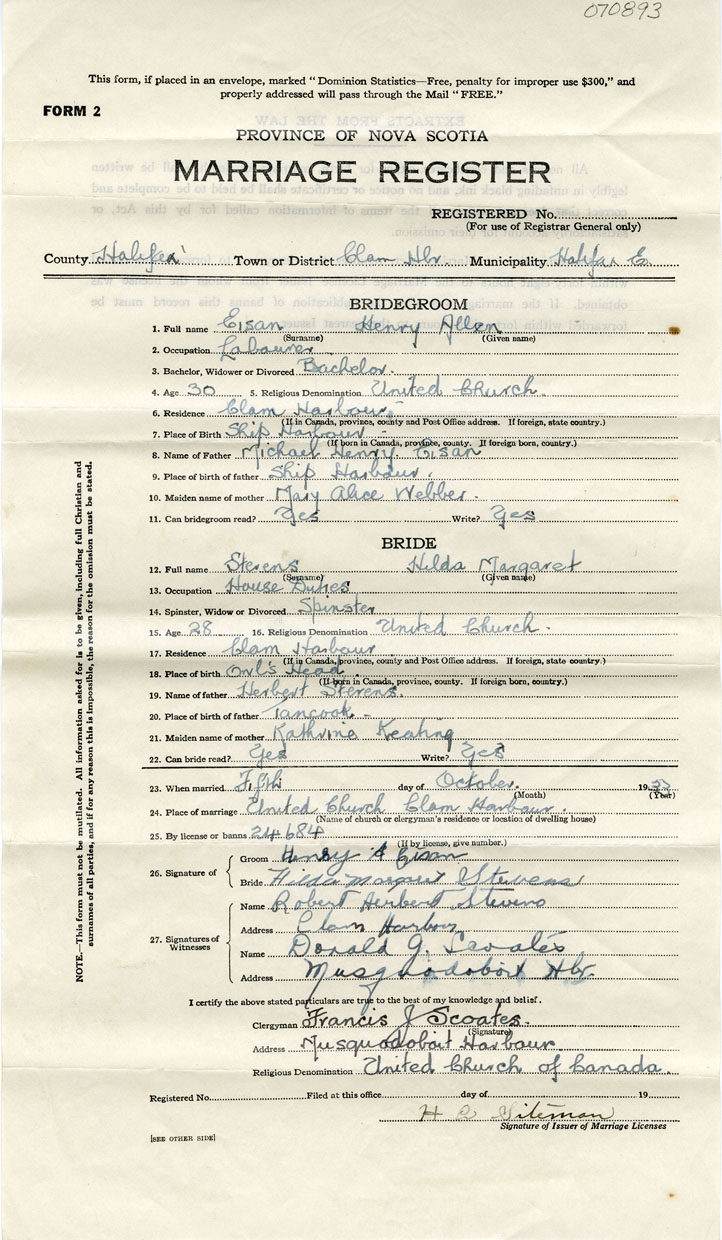 070893
This form, if placed in an envelope, marked "Dominion Statistics—Free, penalty for improper use $300," and
properly addressed will pass through the Mail "FREE."
FORM 2
PROVINCE OF NOVA SCOTIA
MARRIAGE REGISTER
REGISTERED No.
(For use of Registrar General only)
County Halifax Town or District Clam Hbr. Municipality Halifax E.
BRIDEGROOM
1. Full name Eisan Henry Allen
(Surname) (Given name)
2. Occupation Labourer
3. Bachelor, Widower or Divorced Bachelor.
4. Age 30 5. Religious Denomination United Church.
6. Residence Clam Harbour
(If in Canada, province, county and Post Office address. If foreign, state country.)
7. Place of Birth Ship Harbour
(If born in Canada, province, county. If foreign born, country.)
8. Name of Father Michael Henry Eisan
9. Place of birth of father Ship Harbour.
10. Maiden name of mother Mary Alice Webber.
11. Can bridegroom read? Yes Write? Yes
BRIDE
12. Full name Stevens Hilda Margaret
(Surname) (Given name)
13. Occupation House Duties
14. Spinster, Widow or Divorced Spinster
15. Age 28 16. Religious Denomination United Church.
17. Residence Clam Harbour
(If in Canada, province, county and Post Office address. If foreign, state country.)
18. Place of birth Owl's Head
(If born in Canada, province, county. If foreign born, country.)
19. Name of father Herbert Stevens.
20. Place of birth of father Tancook.
21. Maiden name of mother Kathrina Keating
22. Can bride read? Yes Write? Yes
23. When married Fifth day of October. 19
(Month) (Year)
24. Place of marriage United Church Clam Harbour.
(Name of church or clergyman's residence or location of dwelling house)
25. By license or banns 214684
(If by license, give number.)
26. Signature of
Groom Henry A Eisan
Bride Hilda Margaret Stevens
27. Signatures of Witnesses
Name Robert Herbert Stevens
Address Clam Harbor
Name Donald G. Scoates
Address Musquodoboit Hbr.
I certify the above stated particulars are true to the best of my knowledge and belief.
Clergyman Francis J Scoates.
(Signature)
Address Musquodoboit Harbour
Religious Denomination United Church of Canada.
Registered No. Filed at this office day of 19
H
Signature of Issuer of Marriage Licenses
[SEE OTHER SIDE]
NOTE.—This form must not be mutilated. All information asked for is to be given, including full Christian and
surnames of all parties, and if for any reason this is impossible, the reason for the omission must be stated.